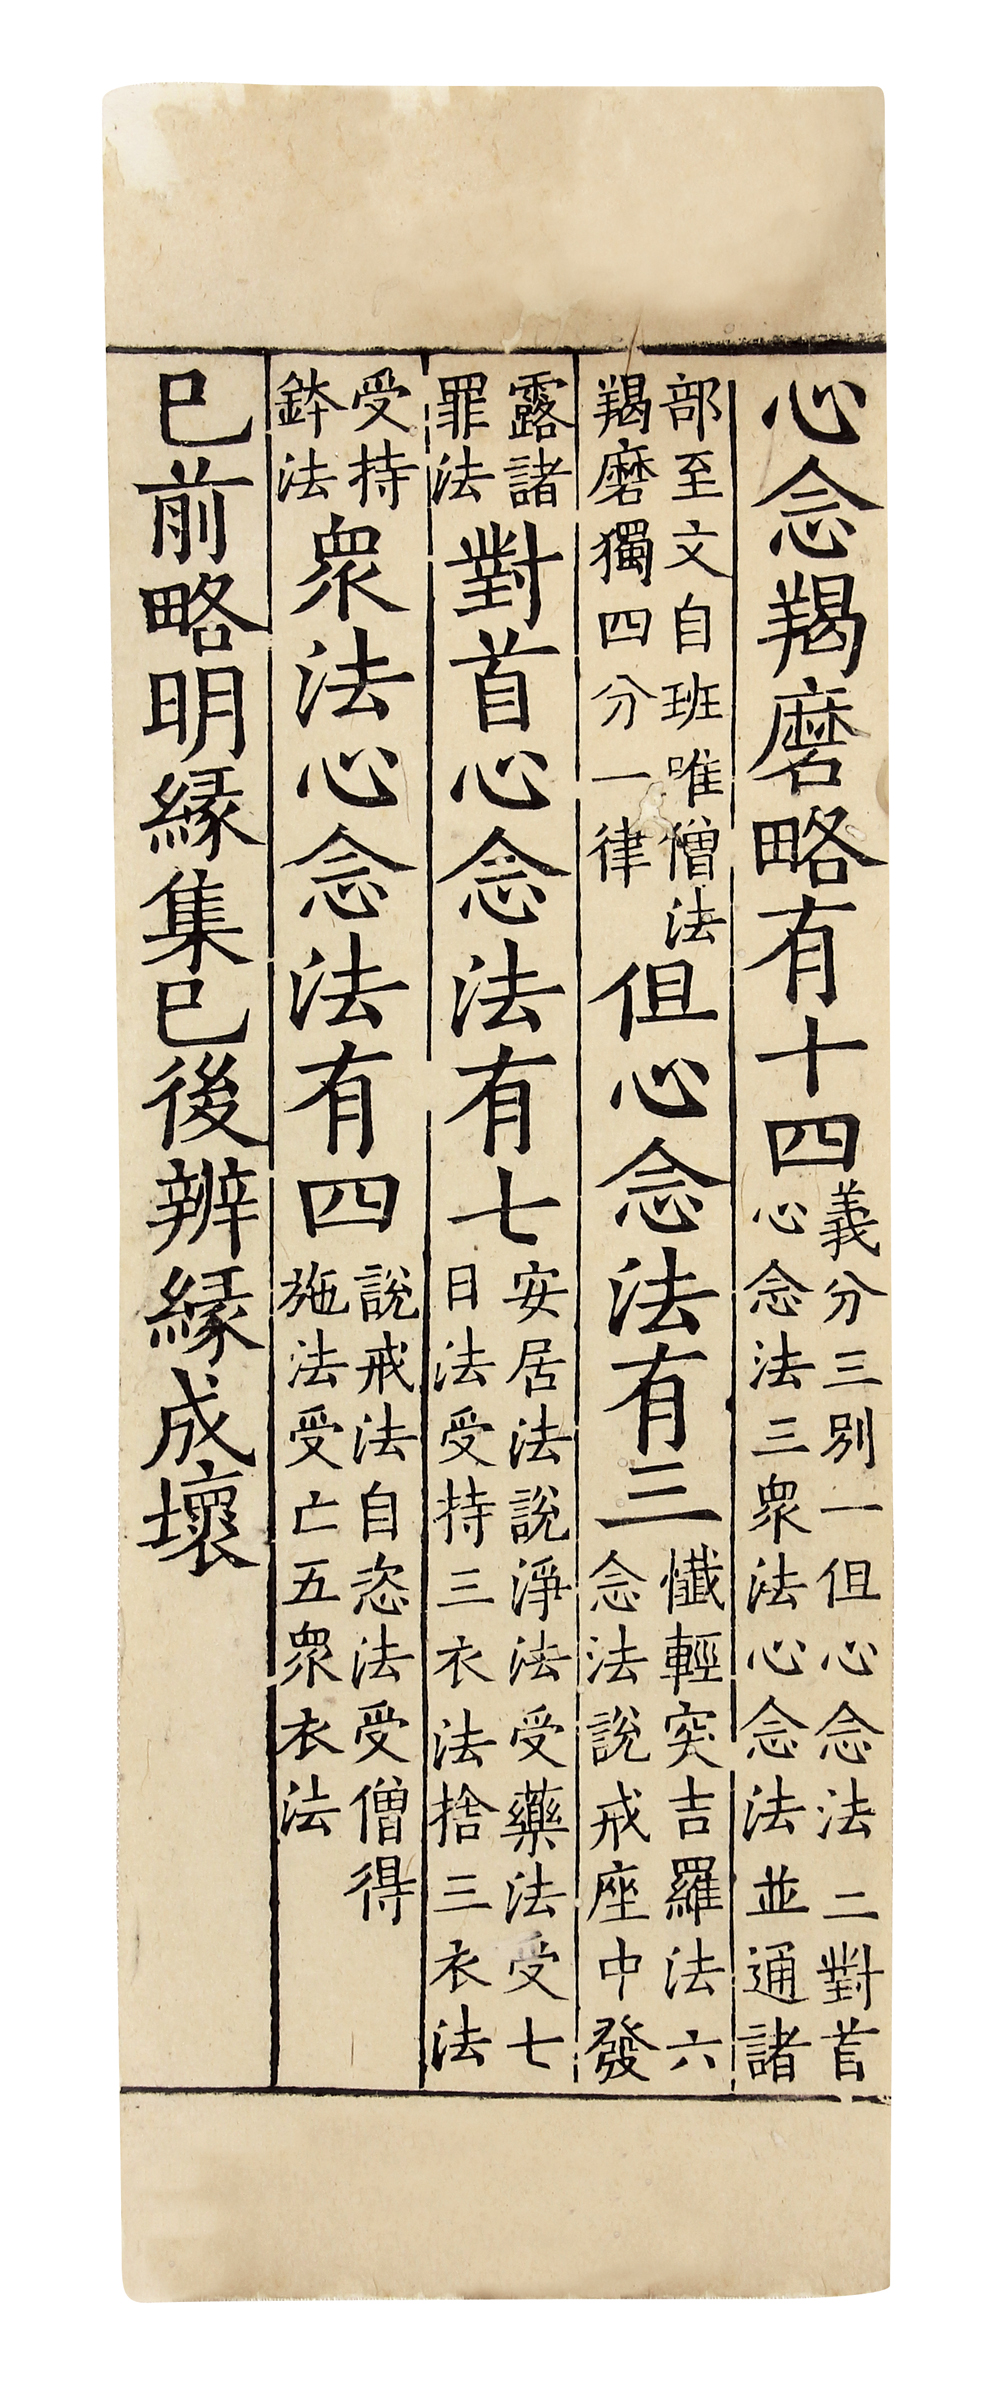 心念羯磨略有十四義分三別一但心念法二對首
心念法三衆法心念法並通諸
部至文自班唯僧法
羯磨獨四分一律但心念法有三懺輕突吉羅法六
念法說戒座中發
露諸
罪法對首心念法有七安居法說淨法受藥法受七
日法受持三衣法捨三衣法
受持
鉢法衆法心念法有四說戒法自恣法受僧得
施法受亡五衆衣法
已前略明緣集已後辨緣成壞